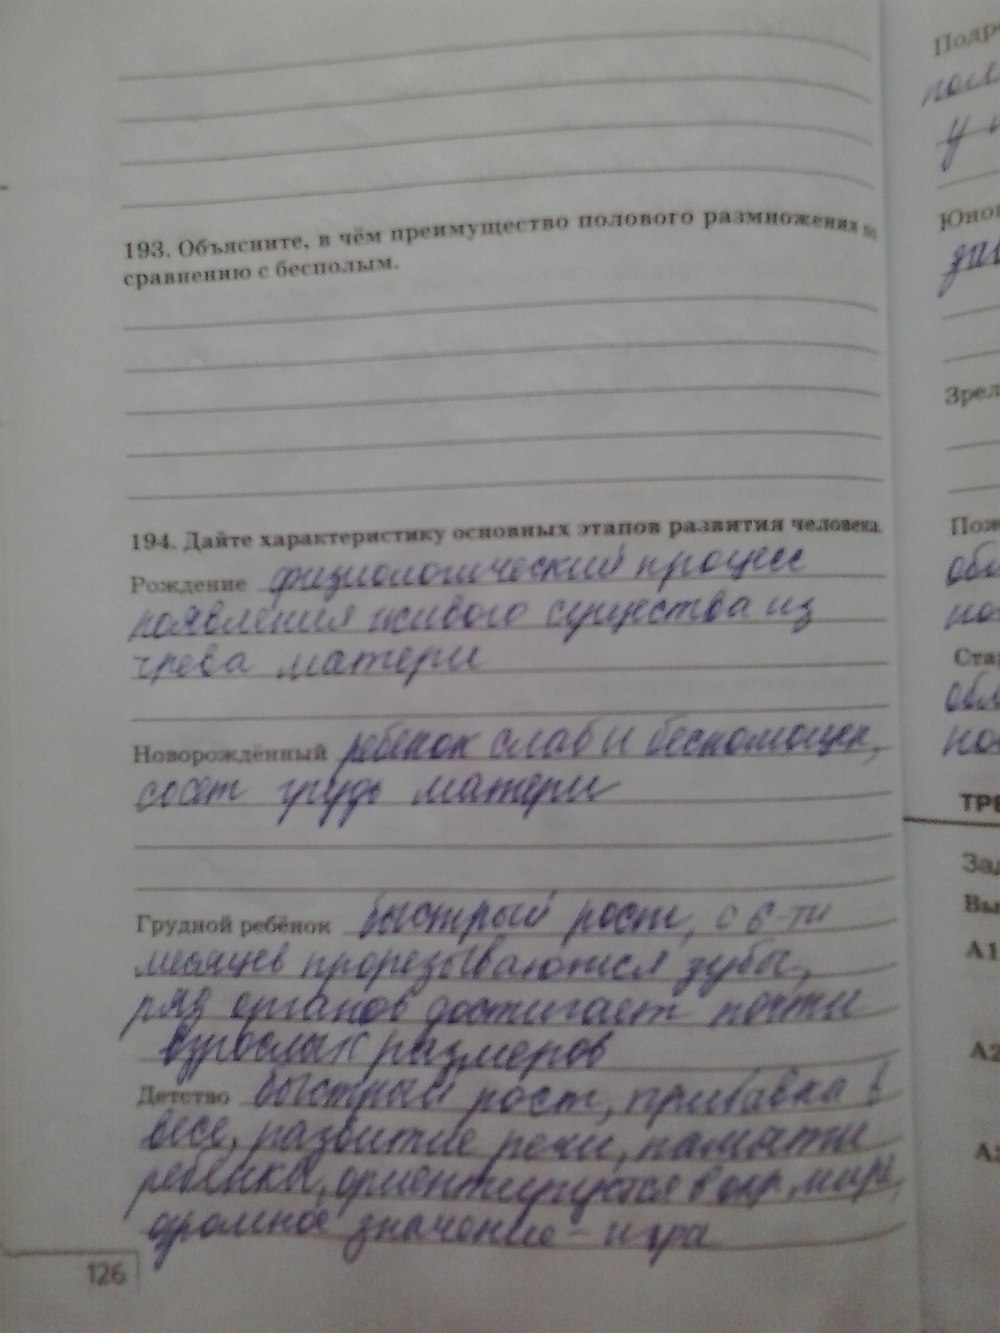 193. Объясните, в чём преимущество полового размножения по
сравнению с бесполым.
194. Дайте характеристику основных этапов развития человека.
Рождение физиологический процесс
появления живого существа из
чрева матери
Новорождённый ребенок слаб и беспомощен,
сосёт грудь матери
Грудной ребёнок быстрый рост, с 6-ти
месяцев прорезываются зубы,
ряд органов достигает почти
взрослых размеров
Детство быстрый рост, прибавка в
весе, развитие речи, памяти
ребенка, ориентируется в окр. мире,
огромное значение - игра
126
Подр
пол
у
Юнош
Зрел
Пож
обо
по
Ста
обл
по
ТРЕ
Зад
Вы
А1
А2